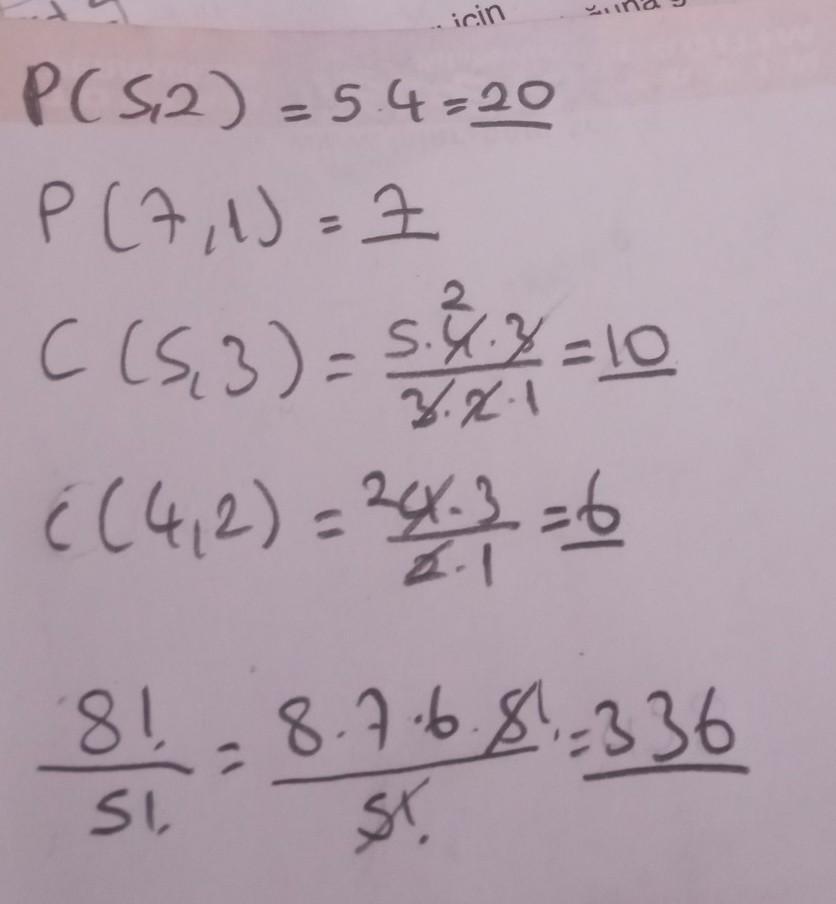 için
P(5,2) = 5.4 = 20
P(7,1) = 7
C(5,3) = 5.4.3 / 3.2.1 = 10
C(4,2) = 4.3 / 2.1 = 6
8! / 5! = 8.7.6.5! / 5! = 336